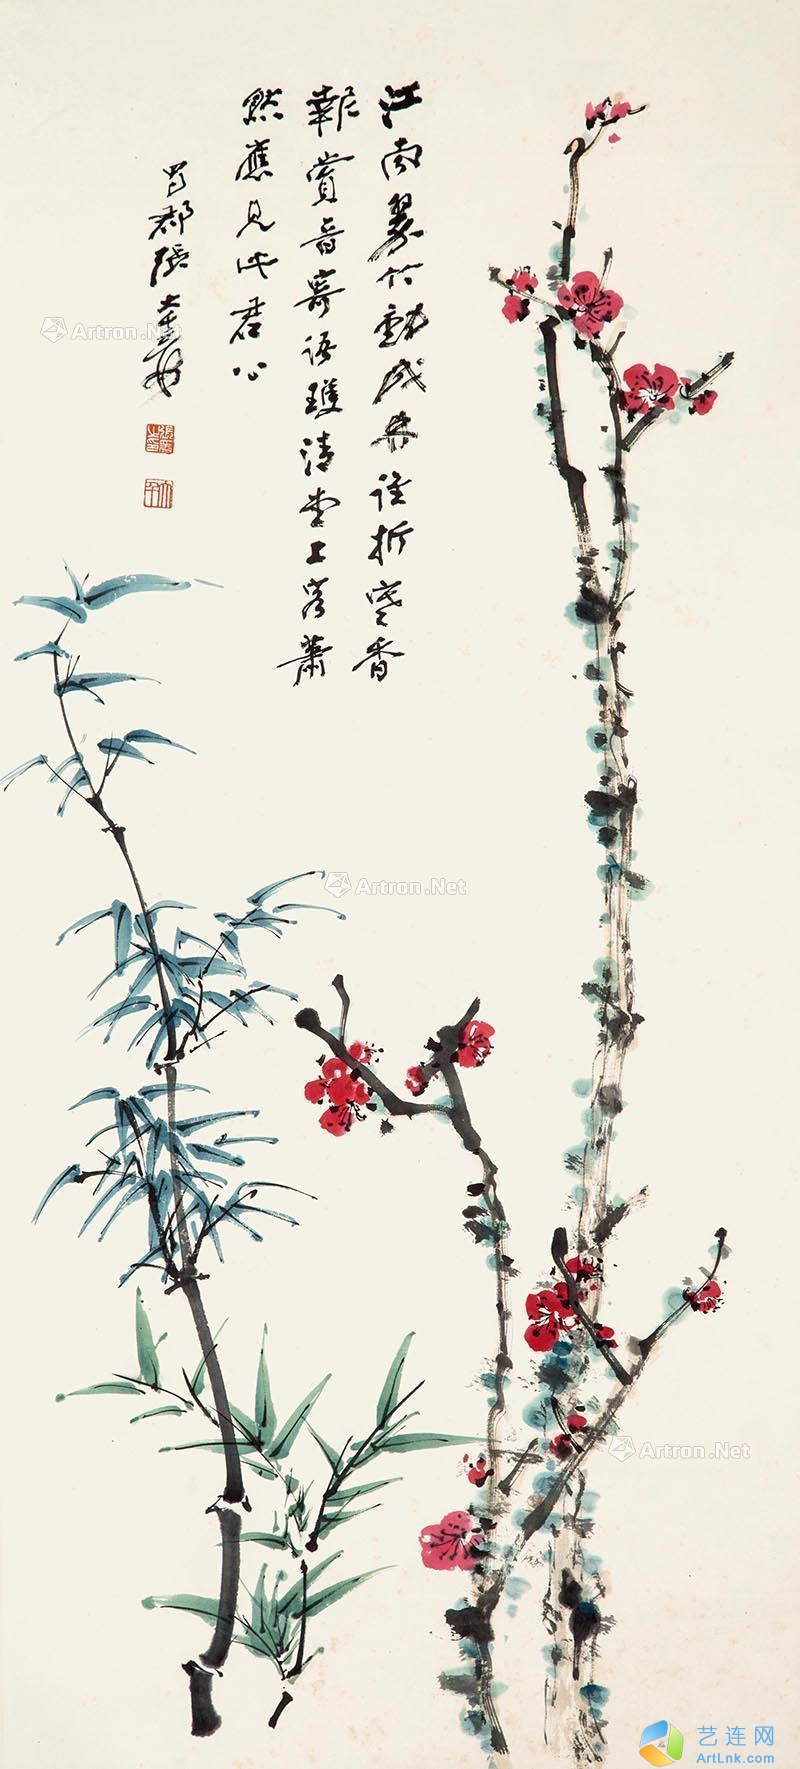 江南翠竹動成林誰折寒香
報賞音寄語雙清堂上客蕭
然應見此君心
蜀郡張大千爰
大千
Artron.Net
Artron.Net
Artron.Net
艺连网
ArtLnk.com